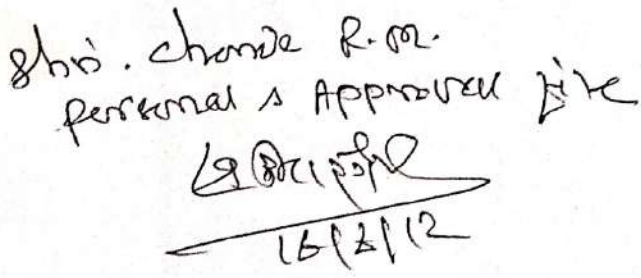 Shri. Chonde R.M.
Personal & Approval file
16/8/12